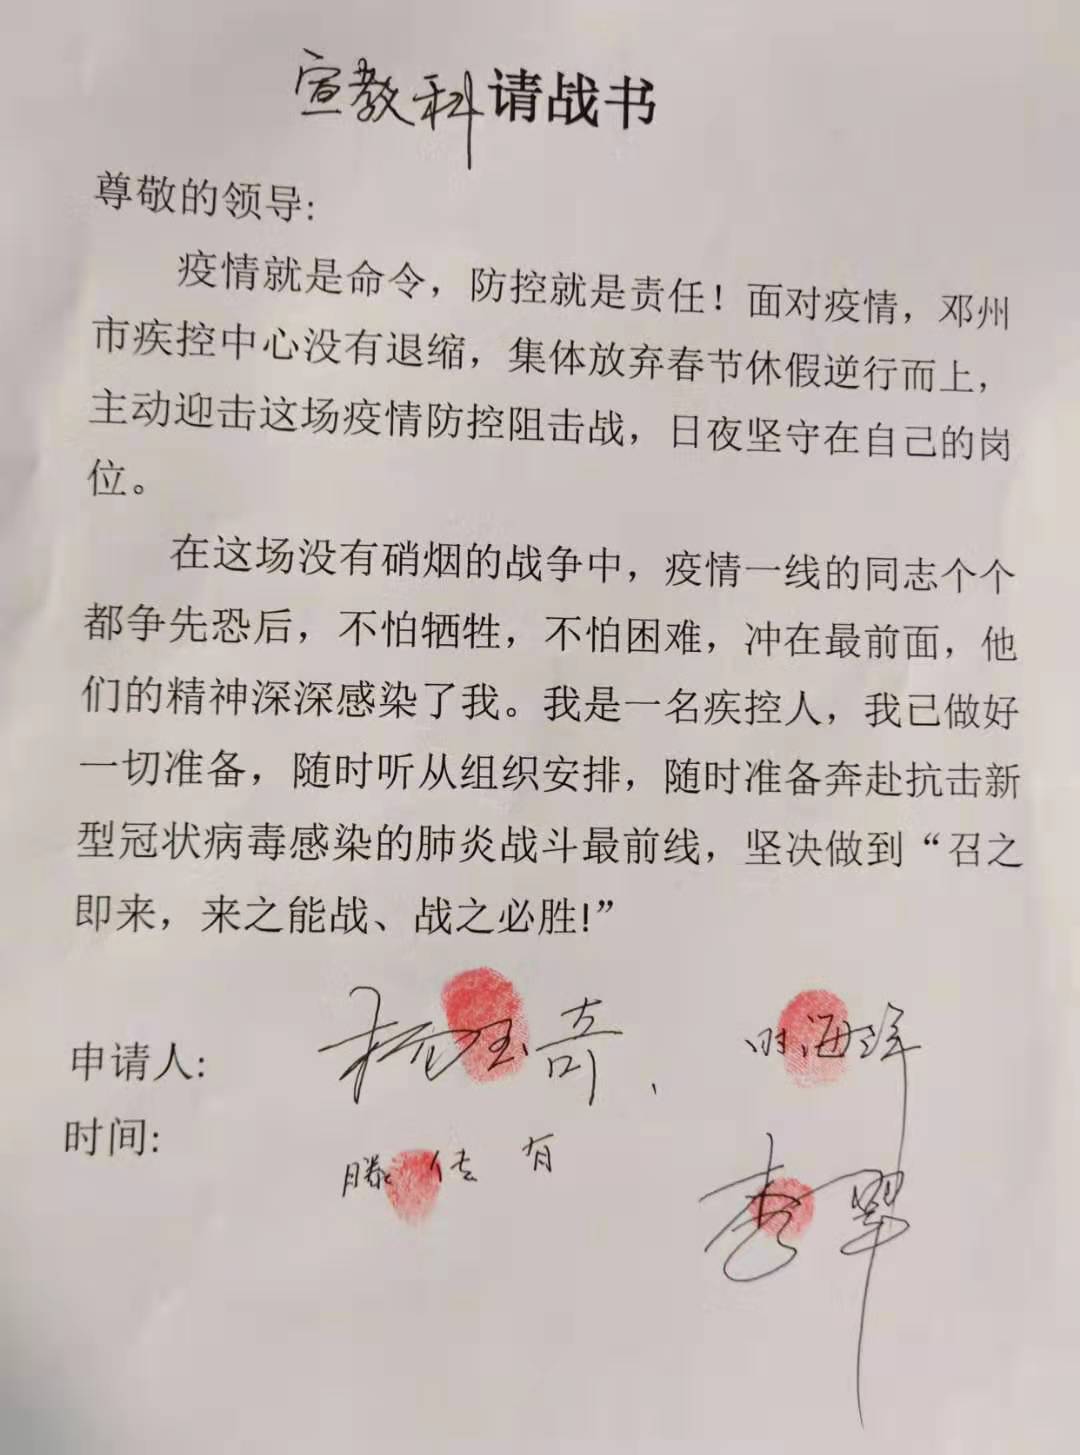 宣教科请战书
尊敬的领导:
疫情就是命令，防控就是责任！面对疫情，邓州
市疾控中心没有退缩，集体放弃春节休假逆行而上，
主动迎击这场疫情防控阻击战，日夜坚守在自己的岗
位。
在这场没有硝烟的战争中，疫情一线的同志个个
都争先恐后，不怕牺牲，不怕困难，冲在最前面，他
们的精神深深感染了我。我是一名疾控人，我已做好
一切准备，随时听从组织安排，随时准备奔赴抗击新
型冠状病毒感染的肺炎战斗最前线，坚决做到“召之
即来，来之能战、战之必胜!”
申请人: 杨玉奇、 时海洋
时间:
滕传有 李翠